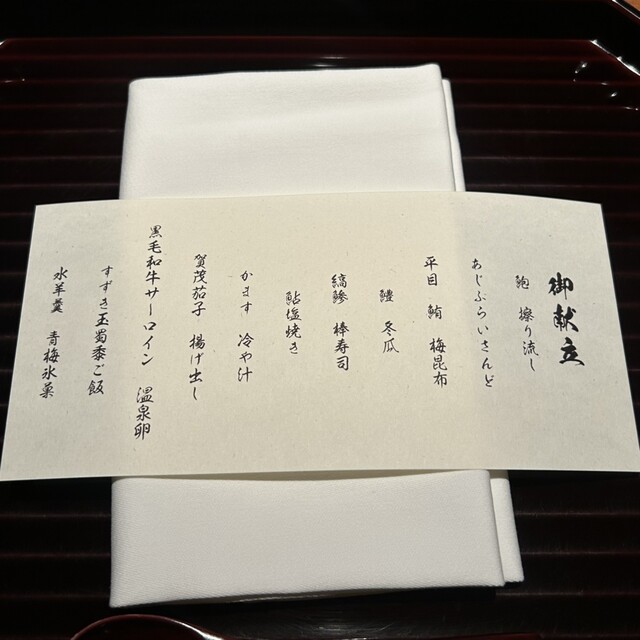 御献立
鮑 擦り流し
あじふらいさんど
平目 鮪 梅昆布
鱧 冬瓜
縞鯵 棒寿司
鮎塩焼き
かます 冷や汁
賀茂茄子 揚げ出し
黒毛和牛サーロイン 温泉卵
すずき玉蜀黍ご飯
水羊羹 青梅氷菓